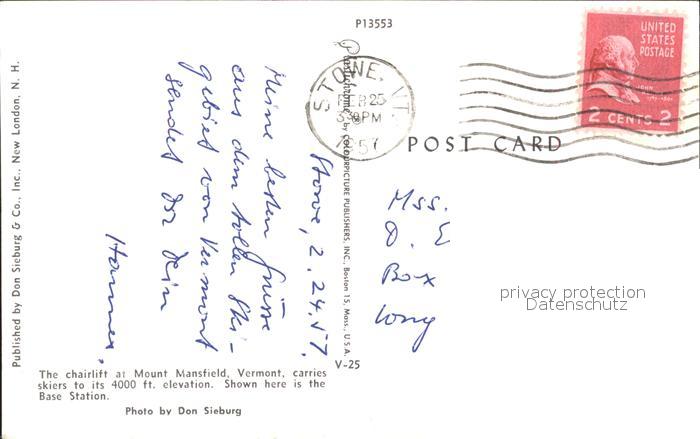 P13553
UNITED
STATES
POSTAGE
JOHN
2 CENTS 2
STOWE, VT.
FEB 25
3 PM
1957
POST CARD
Published by Don Sieburg & Co., Inc., New London, N. H.
Plastichrome by COLOURPICTURE PUBLISHERS, INC., Boston 15, Mass., U.S.A.
Stowe, 2.24.57.
Meine besten Grüsse
aus dem tollen Ski-
gebiet von Vermont
sendet Dir Dein
Hannes.
Mss.
D. E
Box
Long
privacy protection
Datenschutz
V-25
The chairlift at Mount Mansfield, Vermont, carries
skiers to its 4000 ft. elevation. Shown here is the
Base Station.
Photo by Don Sieburg